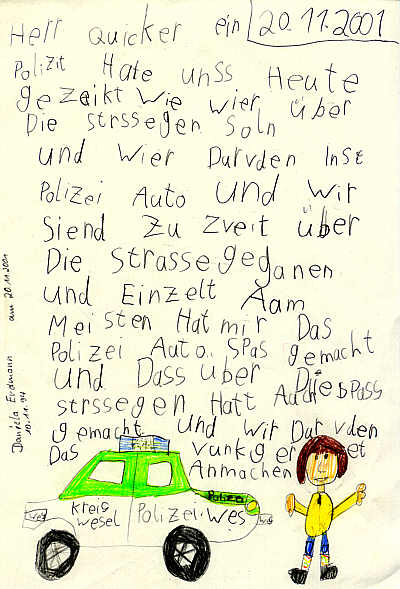 Herr Quicker ein
20.11.2001
Polizit Hate unss Heute
gezeikt wie wier über
Die strssegen soln
und wier Durvden Inst
Polizei Auto und wir
siend zu zveit über
Die strassegeganen
und Einzelt Aam
Meisten Hat mir Das
Polizei Auto. SPas gemacht
und Dass über Die
strssegen Hatt Aach spass
gemacht. und wir Durvden
Das vunkger et
Anmachen
Polizei
Kreis
wesel
Polizei.wes
Daniela Erdmann am 20.11.2001
10.11.94